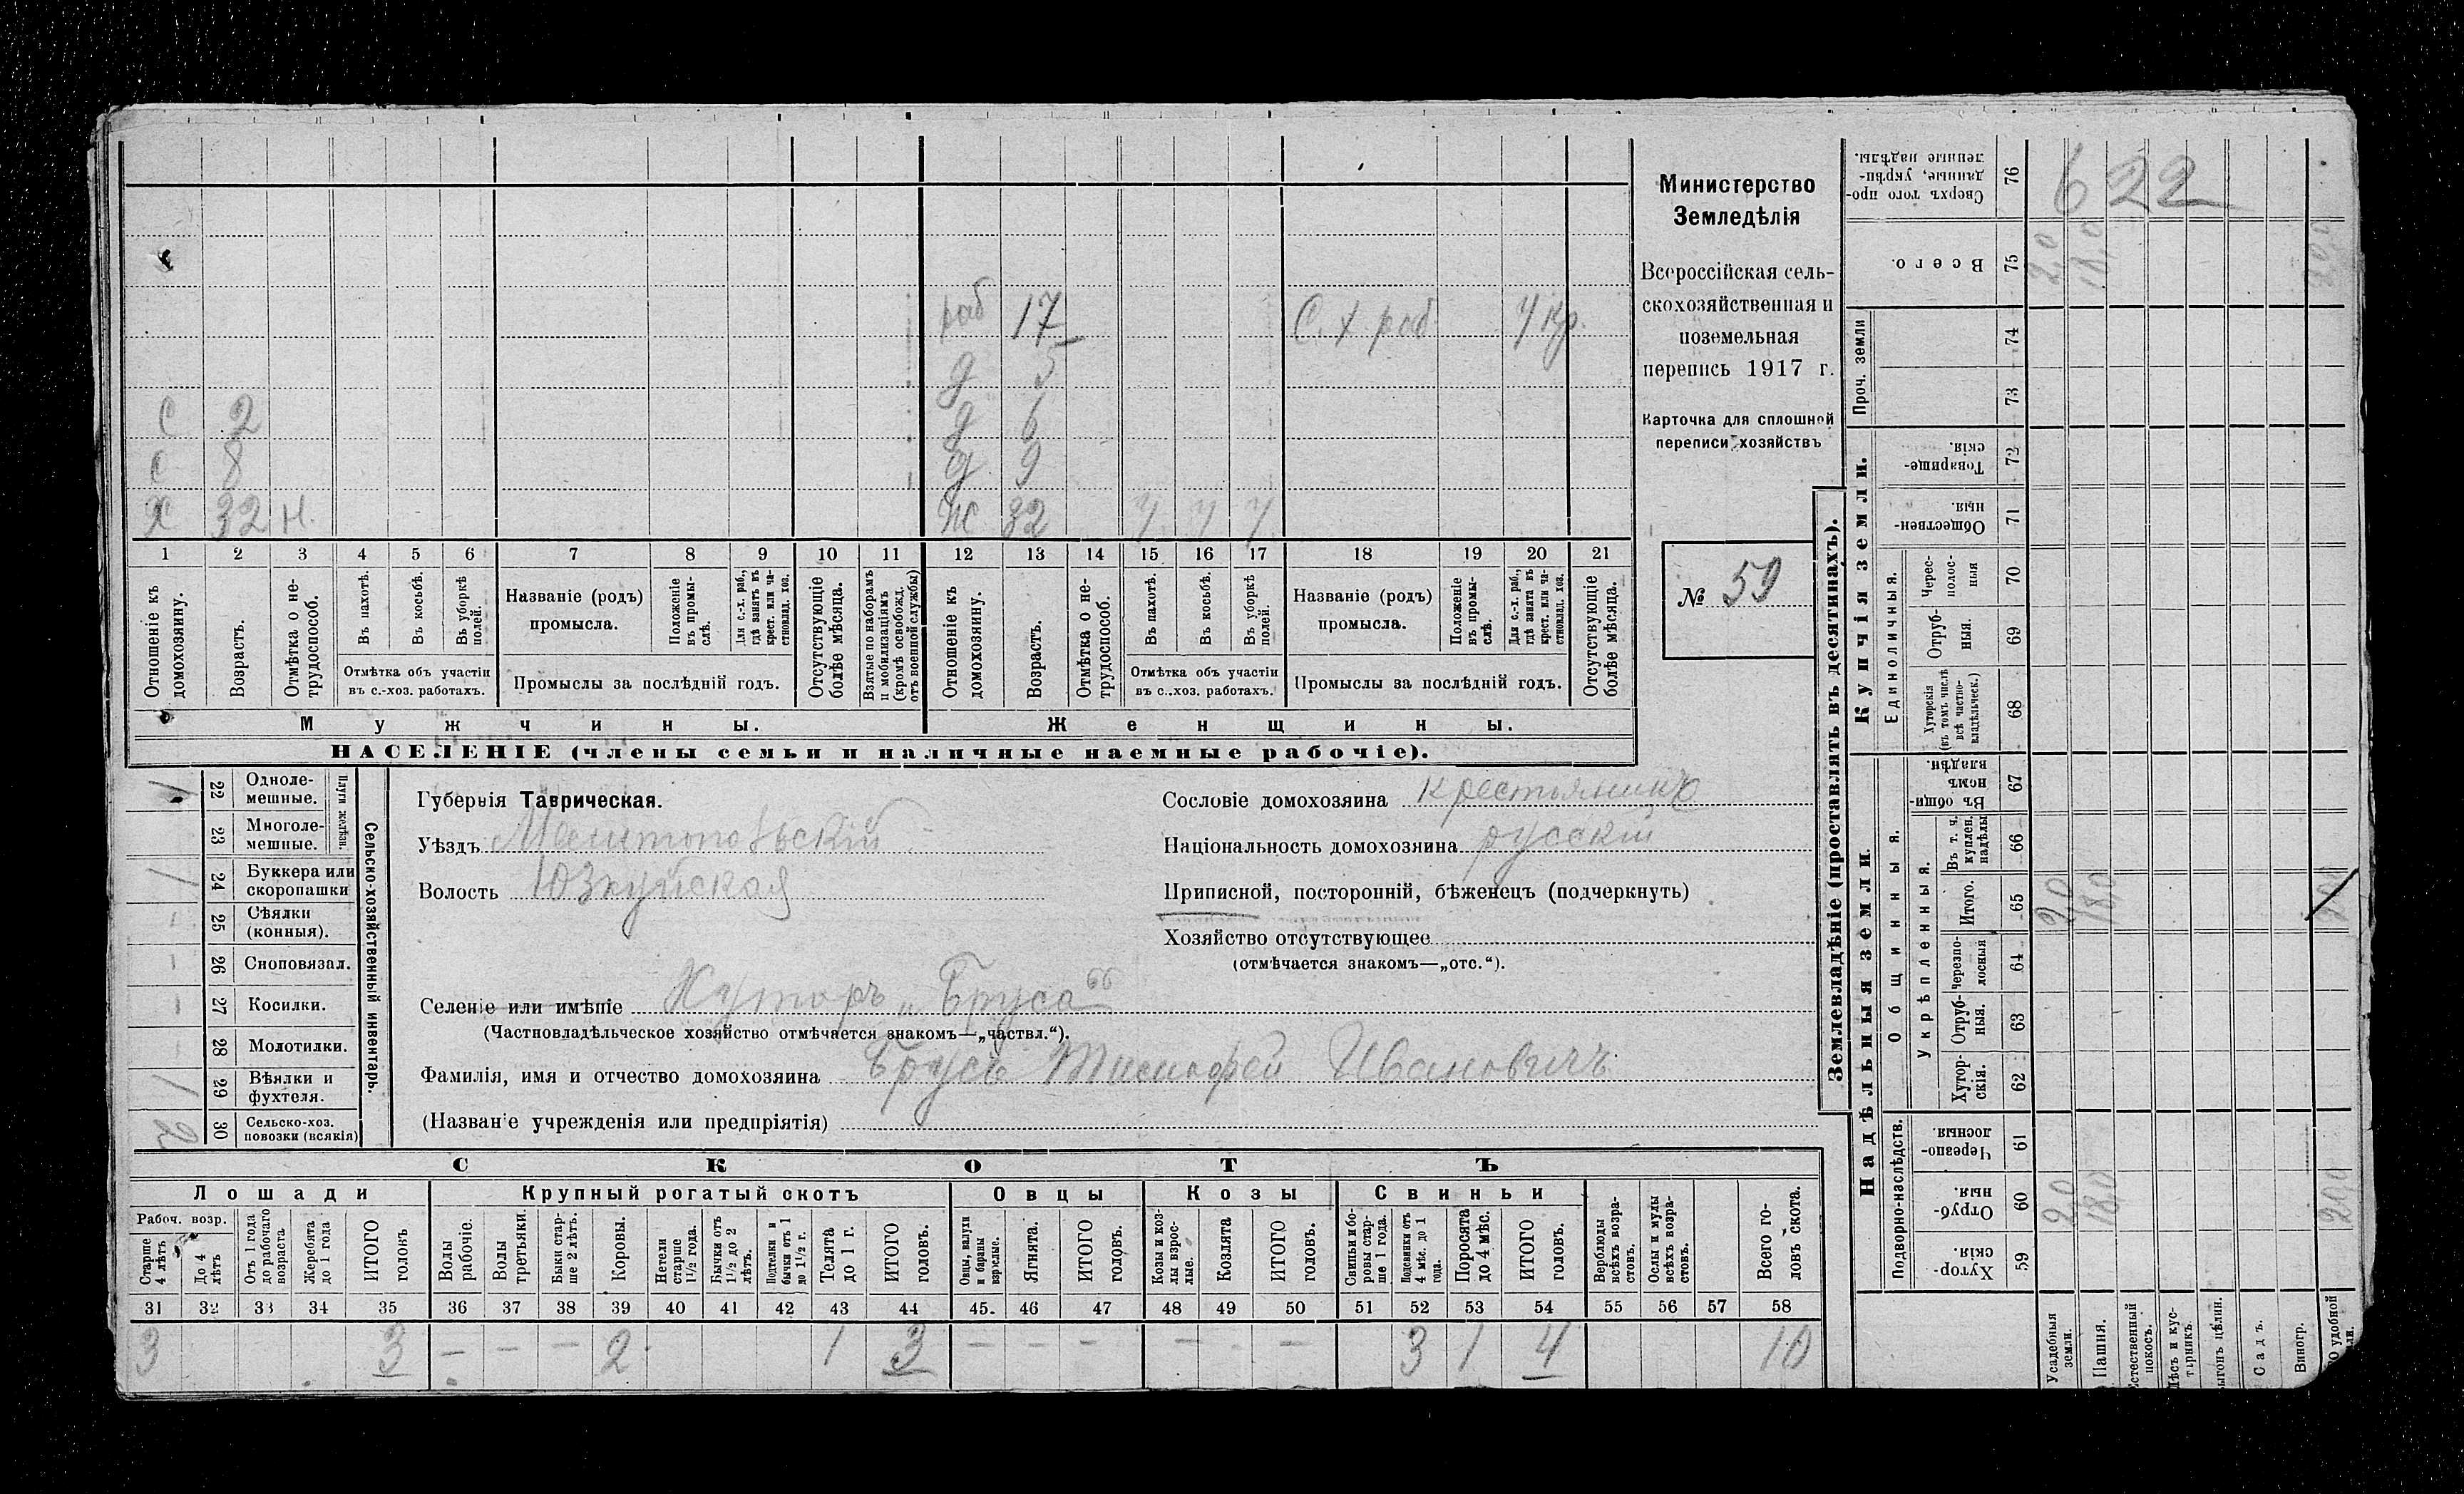 раб 17 С. х. раб. У кр.
д 5
С 2 д 6
С 8 д 9
Х 32 Н. Ж 32 У У У
1 2 3 4 5 6 7 8 9 10 11 12 13 14 15 16 17 18 19 20 21
Отношеніе къ домохозяину.
Возрастъ.
Отмѣтка о не-трудоспособ.
Въ пахотѣ.
Въ косьбѣ.
Въ уборкѣ полей.
Отмѣтка объ участіи
въ с.-хоз. работахъ.
Названіе (родъ)
промысла.
Положеніе въ промы-слѣ.
Для с.-х. раб., гдѣ занятъ въ крест. или ча-стновлад. хоз.
Промыслы за послѣдній годъ.
Отсутствующіе болѣе мѣсяца.
Взятые по наборамъ и мобилизаціямъ (кромѣ освобожд. отъ военной службы)
Отношеніе къ домохозяину.
Возрастъ.
Отмѣтка о не-трудоспособ.
Въ пахотѣ.
Въ косьбѣ.
Въ уборкѣ полей.
Отмѣтка объ участіи
въ с.-хоз. работахъ.
Названіе (родъ)
промысла.
Положеніе въ промы-слѣ.
Для с.-х. раб., гдѣ занята въ крест. или ча-стновлад. хоз.
Промыслы за послѣдній годъ.
Отсутствующіе болѣе мѣсяца.
Мужчины. Женщины.
НАСЕЛЕНІЕ (члены семьи и наличные наемные рабочіе).
Министерство
Земледѣлія
Всероссійская сель-
скохозяйственная и
поземельная
перепись 1917 г.
Карточка для сплошной
переписи хозяйствъ
№ 59
Сельско-хозяйственный инвентарь.
Плуги желѣзн.
1 22 Одноле-мешные.
23 Многоле-мешные.
1 24 Буккера или скоропашки
- 25 Сѣялки (конныя).
- 26 Сноповязал.
- 27 Косилки.
- 28 Молотилки.
1 29 Вѣялки и фухтеля.
2 30 Сельско-хоз. повозки (всякія)
Губернія Таврическая.
Уѣздъ Мелитопольскій
Волость Юзкуйская
Сословіе домохозяина крестьянинъ
Національность домохозяина русскій
Приписной, посторонній, бѣженецъ (подчеркнуть)
Хозяйство отсутствующее
(отмѣчается знакомъ—„отс.“).
Селеніе или имѣніе Хуторъ „Бруса“
(Частновладѣльческое хозяйство отмѣчается знакомъ—„частвл.“).
Фамилія, имя и отчество домохозяина Брусъ Тимофей Ивановичъ
(Названіе учрежденія или предпріятія)
СКОТЪ
Лошади Крупный рогатый скотъ Овцы Козы Свиньи
Рабоч. возр.
Старше 4 лѣтъ
До 4 лѣтъ
Отъ 1 года до рабочаго возраста
Жеребята до 1 года
ИТОГО головъ
Волы рабочіе.
Волы третьяки.
Быки стар-ше 2 лѣтъ.
Коровы.
Нетели старше 1½ года.
Бычки отъ 1½ до 2 лѣтъ.
Подтелки и бычки отъ 1 до 1½ г.
Телята до 1 г.
ИТОГО головъ.
Овцы, валухи и бараны взрослые.
Ягнята.
ИТОГО головъ.
Козы и коз-лы взрос-лые.
Козлята
ИТОГО головъ.
Свиньи и бо-ровы стар-ше 1 года.
Подсвинки отъ 4 мѣс. до 1 года.
Поросята до 4 мѣс.
ИТОГО головъ.
Верблюды всѣхъ возра-стовъ.
Ослы и мулы всѣхъ возра-стовъ.
Всего го-ловъ скота.
31 32 33 34 35 36 37 38 39 40 41 42 43 44 45. 46 47 48 49 50 51 52 53 54 55 56 57 58
3 3 - - - 2 1 3 - - - - - 3 1 4 10
Землевладѣніе (проставлять въ десятинахъ).
Надѣльныя земли. Купчія земли. Проч. земли
Подворно-наслѣдств. Общинныя. Укрѣпленныя. Единоличныя.
Хутор-скія. 59
Отруб-ныя. 60 2,0 18,0 20,0
Черезпо-лосныя. 61
Хутор-скія. 62
Отруб-ныя. 63
Черезпо-лосныя 64
Итого. 65 2,0 18,0
Въ т. ч. куплен. надѣлы 66
Въ общи-номъ владѣн. 67
Хуторскія (въ томъ числѣ всѣ частно-владѣльческ.) 68
Отруб-ныя. 69
Черес-полос-ныя 70
Обществен-ныя. 71
Товарище-скія. 72
73
74
Всего. 75 2,0 18,0 20,0
Сверхъ того про-данные, укрѣп-ленные надѣлы. 76
622
Усадебныя земли.
Пашня.
Естественный покосъ.
Лѣсъ и кус-тарникъ.
Выгонъ цѣлин.
Садъ.
Виногр.
удобной